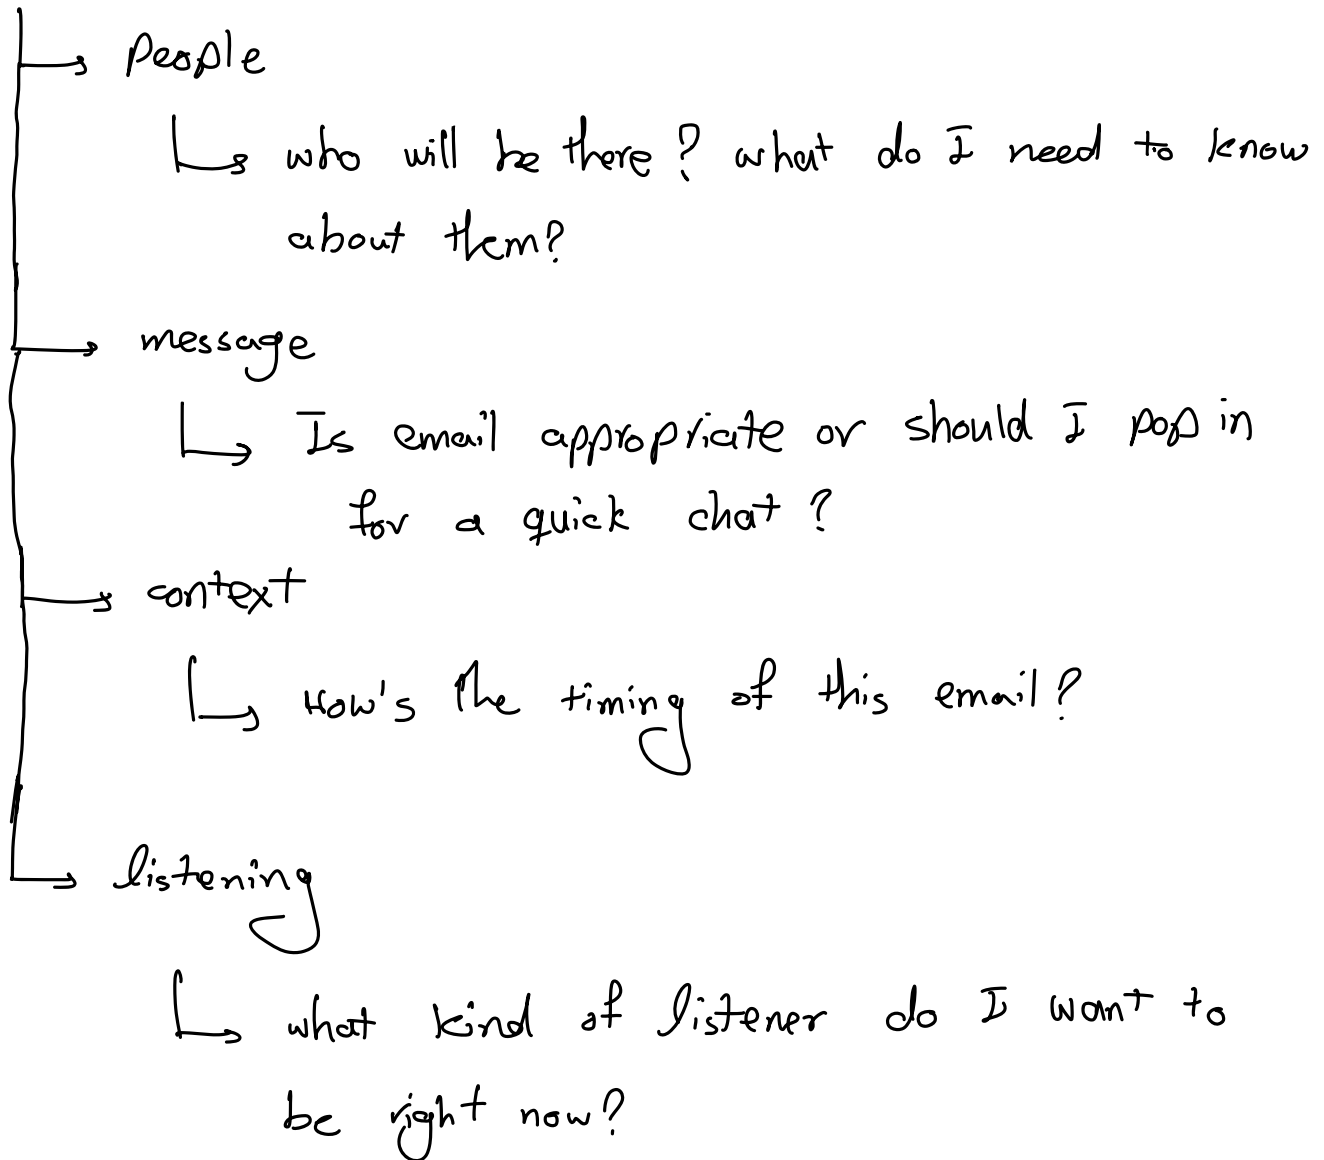 People
who will be there? what do I need to know
about them?
message
Is email appropriate or should I pop in
for a quick chat?
context
How's the timing of this email?
listening
what kind of listener do I want to
be right now?